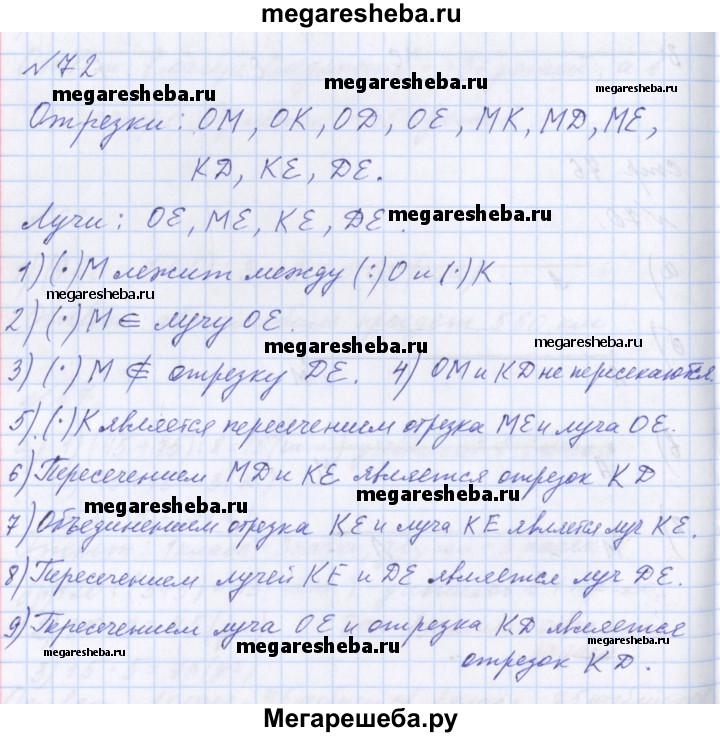 megaresheba.ru
№72
megaresheba.ru
megaresheba.ru
megaresheba.ru
Отрезки: OM, OK, OD, OE, MK, MD, ME,
KD, KE, DE.
Лучи: OE, ME, KE, DE.
megaresheba.ru
1) (·) M лежит между (:) O и (·) K.
megaresheba.ru
2) (·) M ∈ лучу OE.
megaresheba.ru
megaresheba.ru
3) (·) M ∉ отрезку DE. 4) OM и KD не пересекаются.
5) (·) K является пересечением отрезка ME и луча OE.
6) Пересечением MD и KE является отрезок KD
megaresheba.ru
megaresheba.ru
7) Объединением отрезка KE и луча KE является луч KE.
8) Пересечением лучей KE и DE является луч DE.
9) Пересечением луча OE и отрезка KD является
megaresheba.ru
megaresheba.ru
megaresheba.ru
отрезок KD.
Мегарешеба.ру